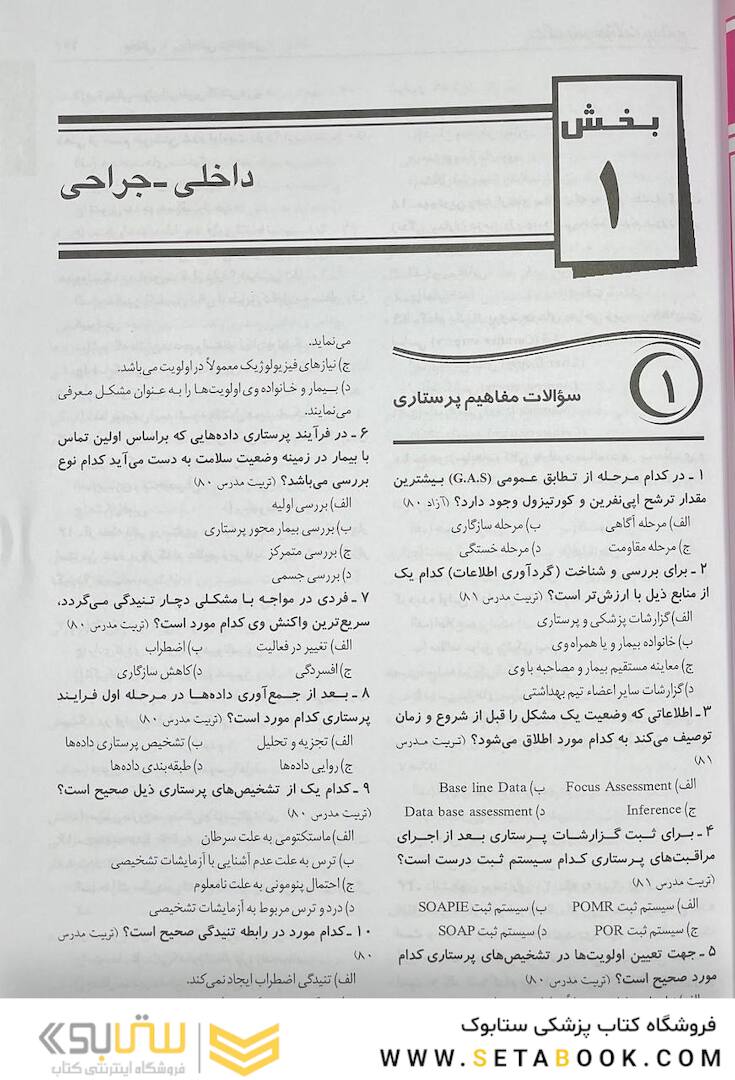 بخش
۱
داخلی - جراحی
۱
سؤالات مفاهیم پرستاری
۱ ـ در کدام مرحله از تطابق عمومی (G.A.S) بیشترین
مقدار ترشح اپی‌نفرین و کورتیزول وجود دارد؟ (آزاد ۸۰)
الف) مرحله آگاهی ب) مرحله سازگاری
ج) مرحله مقاومت د) مرحله خستگی
۲ ـ برای بررسی و شناخت (گردآوری اطلاعات) کدام یک
از منابع ذیل با ارزش‌تر است؟ (تربیت مدرس ۸۱)
الف) گزارشات پزشکی و پرستاری
ب) خانواده بیمار و یا همراه وی
ج) معاینه مستقیم بیمار و مصاحبه با وی
د) گزارشات سایر اعضاء تیم بهداشتی
۳ ـ اطلاعاتی که وضعیت یک مشکل را قبل از شروع و زمان
توصیف می‌کند به کدام مورد اطلاق می‌شود؟ (تربیت مدرس
۸۱)
الف) Focus Assessment ب) Base line Data
ج) Inference د) Data base assessment
۴ ـ برای ثبت گزارشات پرستاری بعد از اجرای
مراقبت‌های پرستاری کدام سیستم ثبت درست است؟
(تربیت مدرس ۸۱)
الف) سیستم ثبت POMR ب) سیستم ثبت SOAPIE
ج) سیستم ثبت POR د) سیستم ثبت SOAP
۵ ـ جهت تعیین اولویت‌ها در تشخیص‌های پرستاری کدام
مورد صحیح است؟ (تربیت مدرس ۸۰)
می‌نماید.
ج) نیازهای فیزیولوژیک معمولاً در اولویت می‌باشد.
د) بیمار و خانواده وی اولویت‌ها را به عنوان مشکل معرفی
می‌نمایند.
۶ ـ در فرآیند پرستاری داده‌هایی که براساس اولین تماس
با بیمار در زمینه وضعیت سلامت به دست می‌آید کدام نوع
بررسی می‌باشد؟ (تربیت مدرس ۸۰)
الف) بررسی اولیه
ب) بررسی بیمار محور پرستاری
ج) بررسی متمرکز
د) بررسی جسمی
۷ ـ فردی در مواجه با مشکلی دچار تنیدگی می‌گردد،
سریع‌ترین واکنش وی کدام مورد است؟ (تربیت مدرس ۸۰)
الف) تغییر در فعالیت ب) اضطراب
ج) افسردگی د) کاهش سازگاری
۸ ـ بعد از جمع‌آوری داده‌ها در مرحله اول فرایند
پرستاری کدام مورد است؟ (تربیت مدرس ۸۰)
الف) تجزیه و تحلیل ب) تشخیص پرستاری داده‌ها
ج) روایی داده‌ها د) طبقه‌بندی داده‌ها
۹ ـ کدام یک از تشخیص‌های پرستاری ذیل صحیح است؟
(تربیت مدرس ۸۰)
الف) ماستکتومی به علت سرطان
ب) ترس به علت عدم آشنایی با آزمایشات تشخیصی
ج) احتمال پنومونی به علت نامعلوم
د) درد و ترس مربوط به آزمایشات تشخیصی
۱۰ ـ کدام مورد در رابطه تنیدگی صحیح است؟ (تربیت مدرس
۸۰)
الف) تنیدگی اضطراب ایجاد نمی‌کند.
فروشگاه کتاب پزشکی ستابوک
WWW.SETABOOK.COM
ستابوک
فروشگاه اینترنتی کتاب